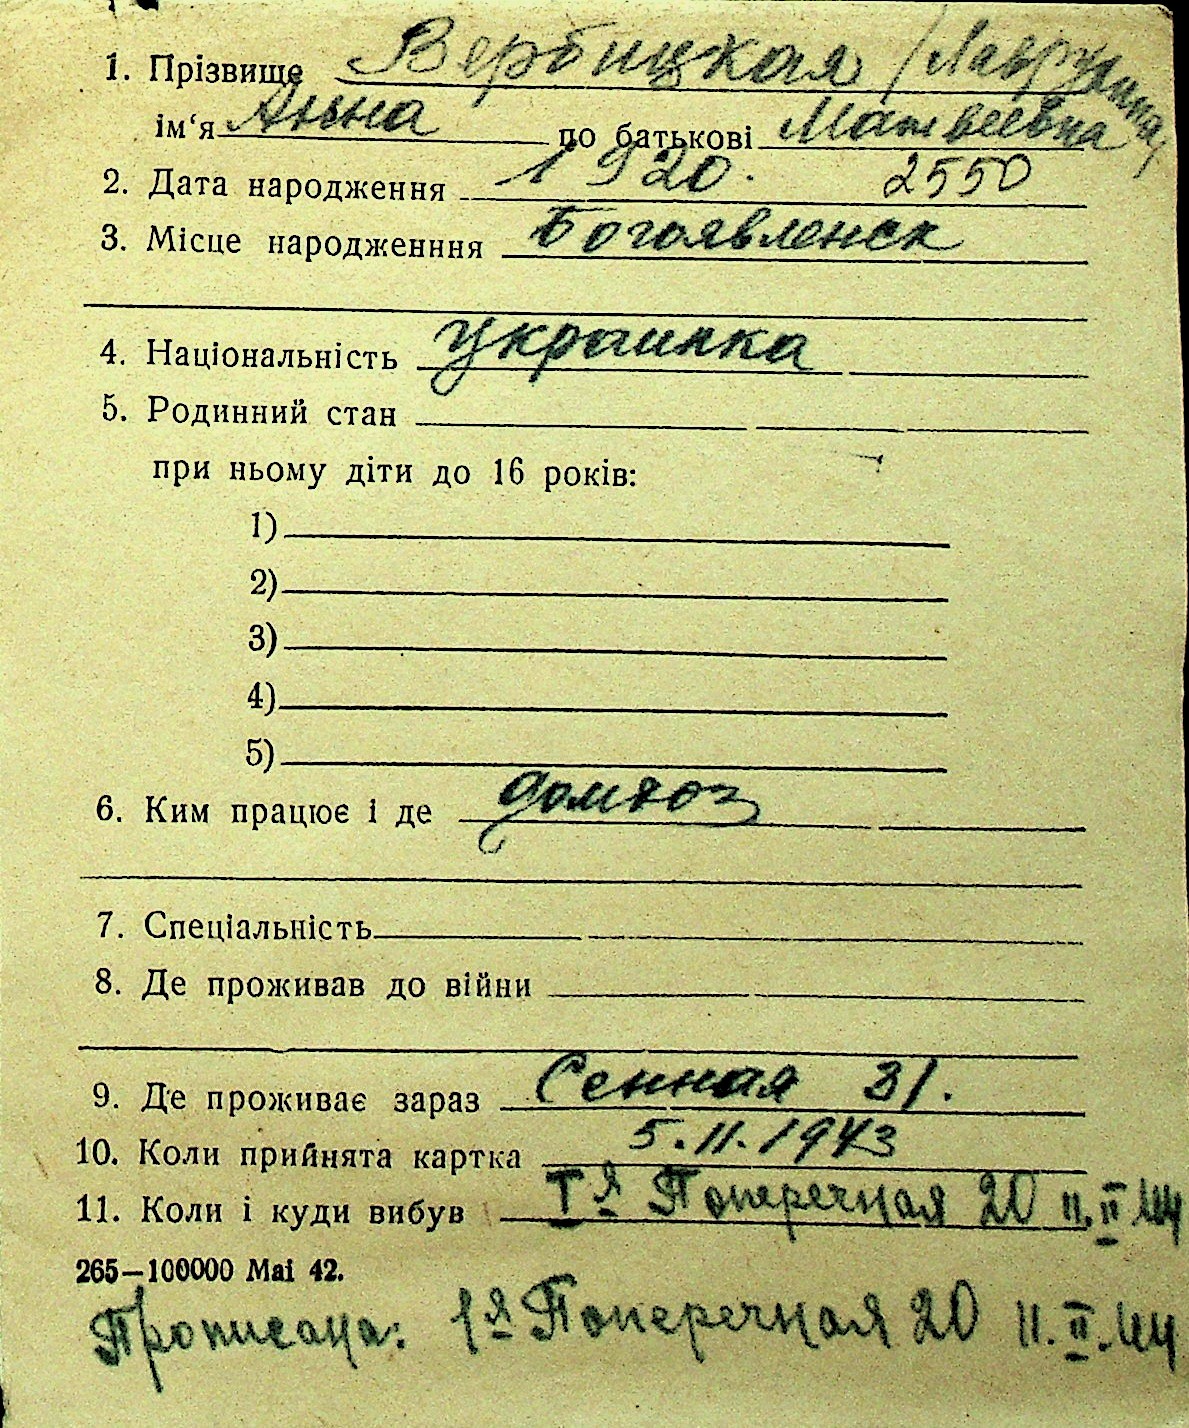 1. Прізвище Вербицкая /Лаврушина/
ім‘я Анна по батькові Матвеевна
2. Дата народження 1920. 2550
3. Місце народженння Богоявленск
4. Національність украинка
5. Родинний стан
при ньому діти до 16 років:
1)
2)
3)
4)
5)
6. Ким працює і де домхоз
7. Спеціальність
8. Де проживав до війни
9. Де проживає зараз Сенная 31.
10. Коли прийнята картка 5.11.1943
11. Коли і куди вибув Iя Поперечная 20 11.II 44
265—100000 Mai 42.
Прописана: 1я Поперечная 20 11.II.44